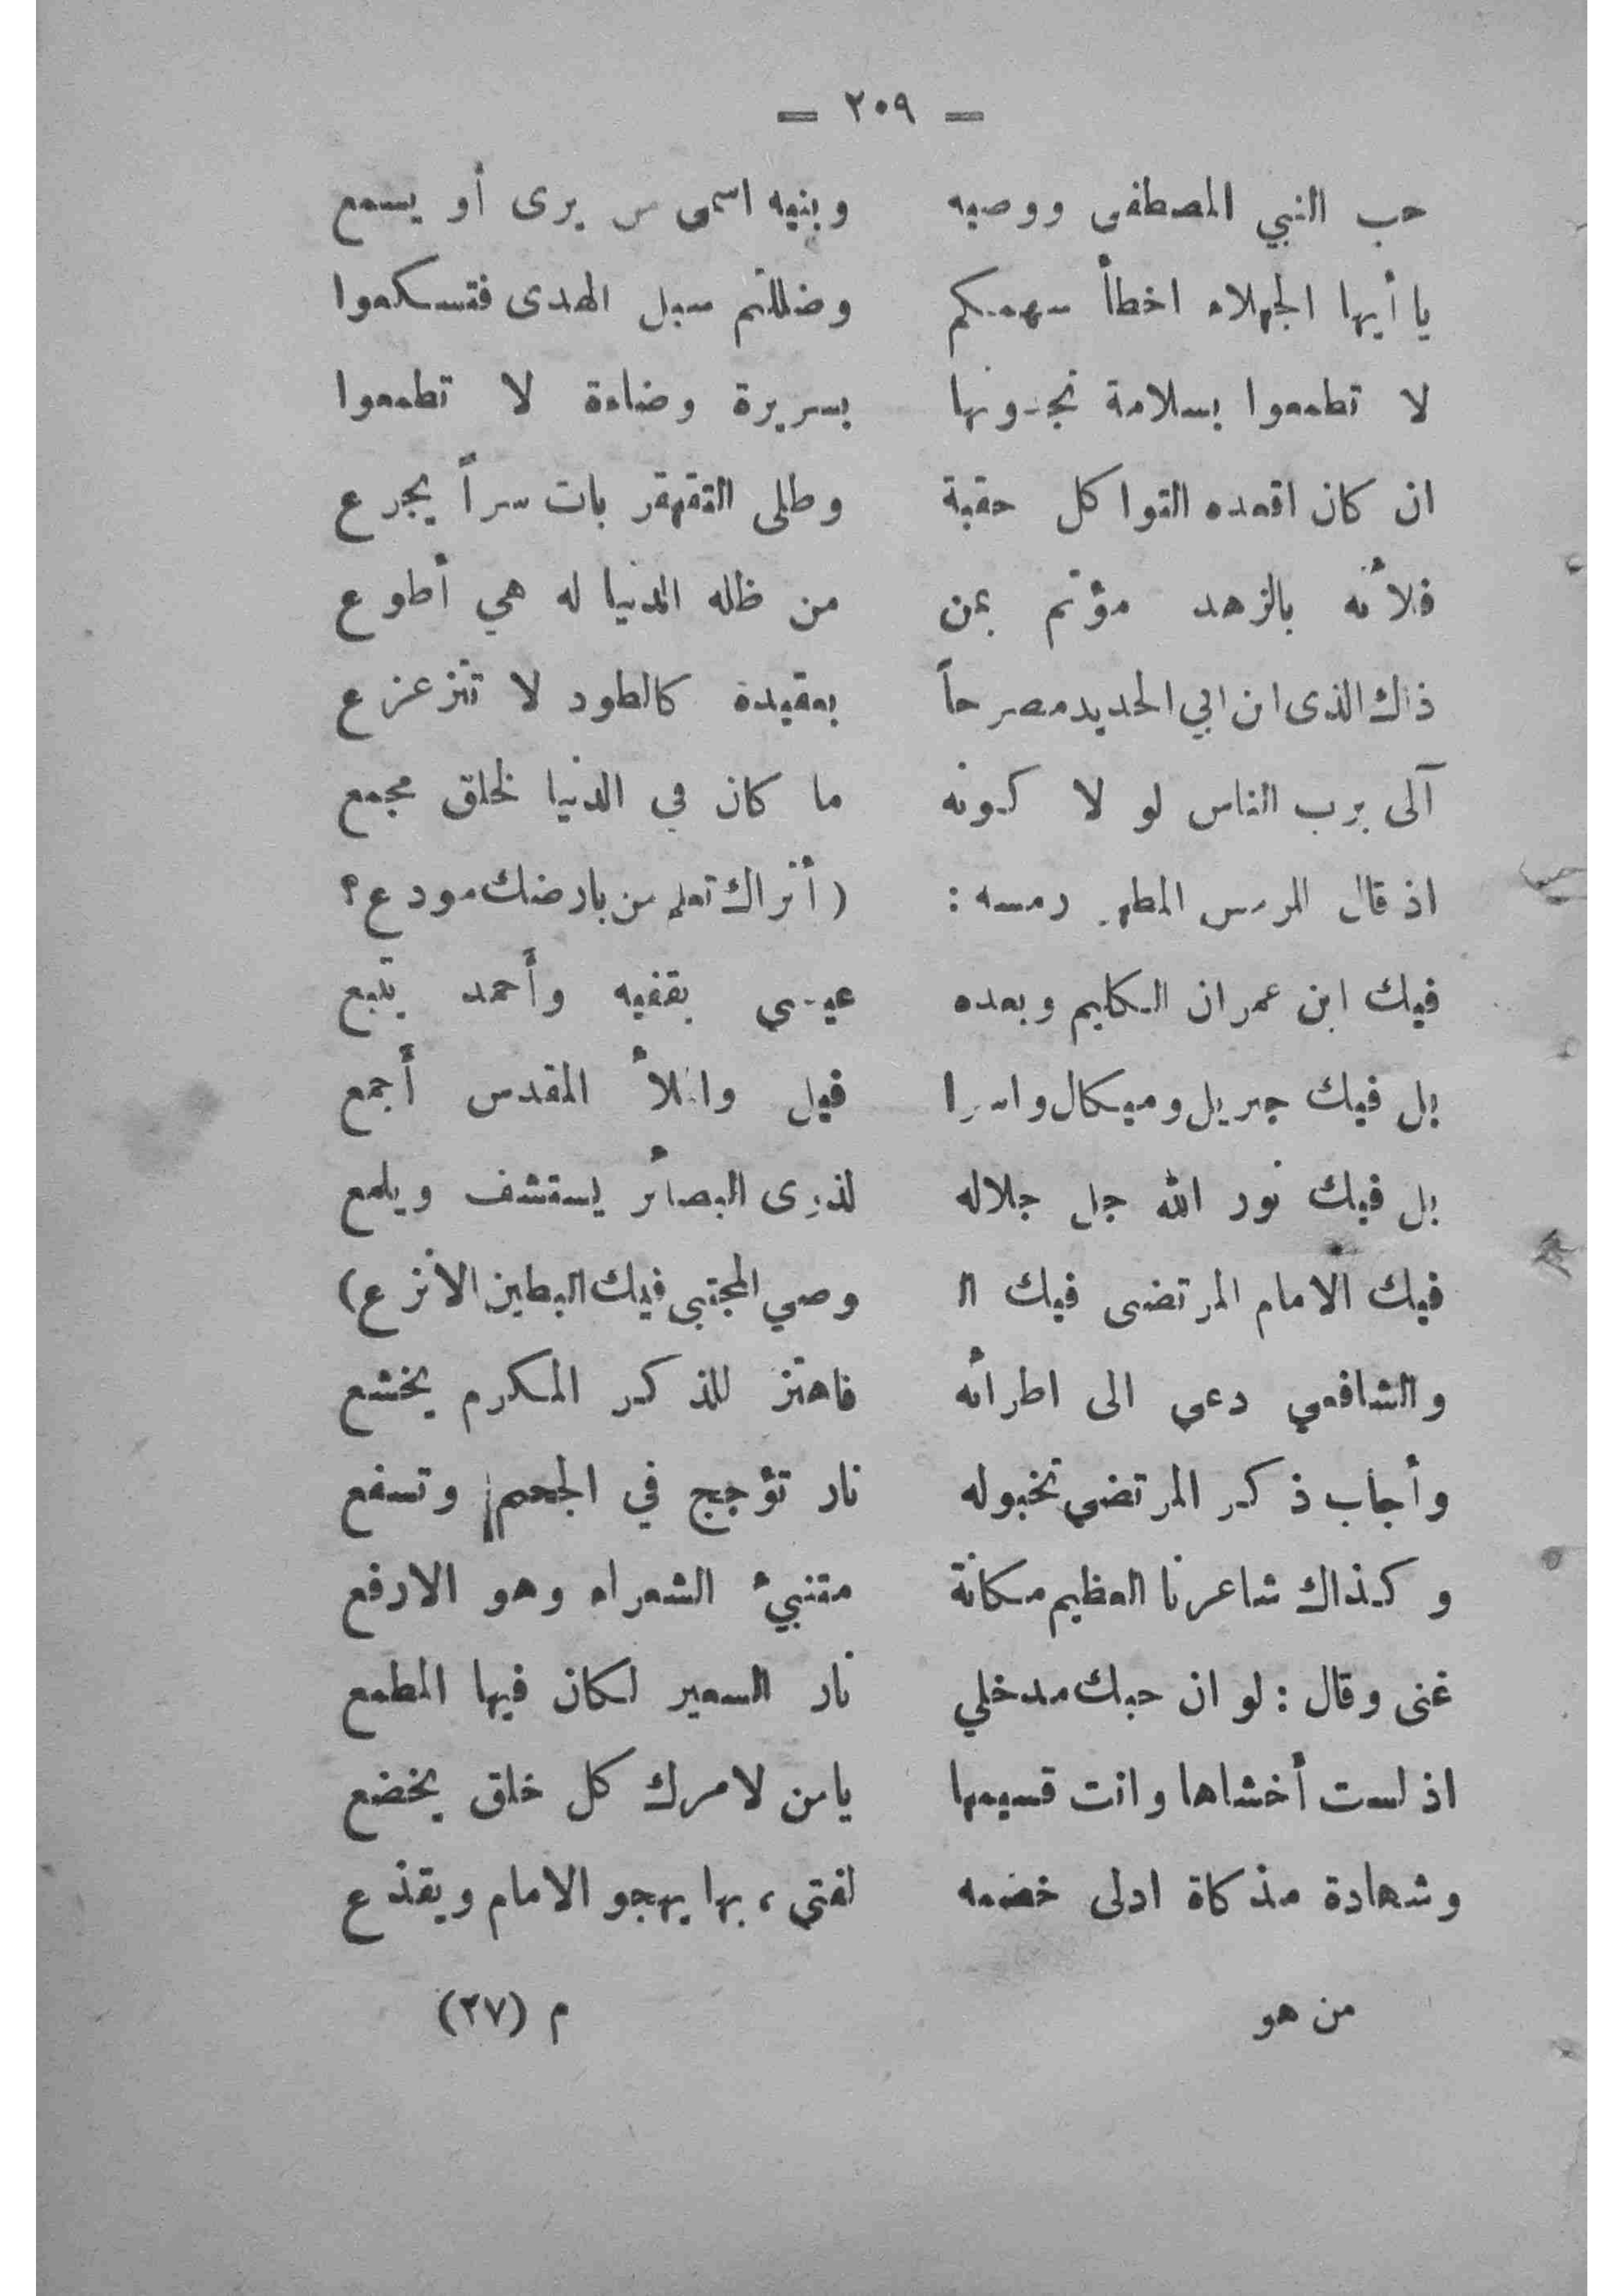 — ٢٠٩ —
حب النبي المصطفى ووصيه وبنيه اسمى من يرى أو يسمع
يا أيها الجهلاء اخطأ سهمكم وضللتم سبل الهدى فتسكعوا
لا تطمعوا بسلامة تجدونها بسريرة وضاءة لا تطمعوا
ان كان اقعده التواكل حقبة وطلى التقهقر بات سراً يجرع
فلأنه بالزهد مؤتم بمن من ظله الدنيا له هي أطوع
ذاك الذى ابن ابي الحديد مصرحاً بعقيدة كالطود لا تتزعزع
آلى برب الناس لو لا كونه ما كان في الدنيا لخلق مجمع
اذ قال للرمس المطهر رمسه : ( أتراك تعلم من بارضك مودع ؟
فيك ابن عمران الكليم وبعده عيسى يقفيه وأحمد يتبع
بل فيك جبريل وميكال واسرا فيل والملأ المقدس أجمع
بل فيك نور الله جل جلاله لذوى البصائر يستشف ويلمع
فيك الامام المرتضى فيك ال وصي المجتبى فيك البطين الانزع )
والشافعي دعي الى اطرائه فاهتز للذكر المكرم يخشع
وأجاب ذكر المرتضى تخبو له نار تؤجج في الجحم وتسفع
وكذاك شاعرنا العظيم مكانة متنبئ الشعراء وهو الارفع
غنى وقال : لو ان حبك مدخلي نار السعير لكان فيها المطمع
اذ لست أخشاها وانت قسيمها يامن لامرك كل خلق يخضع
وشهادة مذ كاة ادلى خضمه لفتى ، بها يهجو الامام ويقذع
من هو م (٢٧)